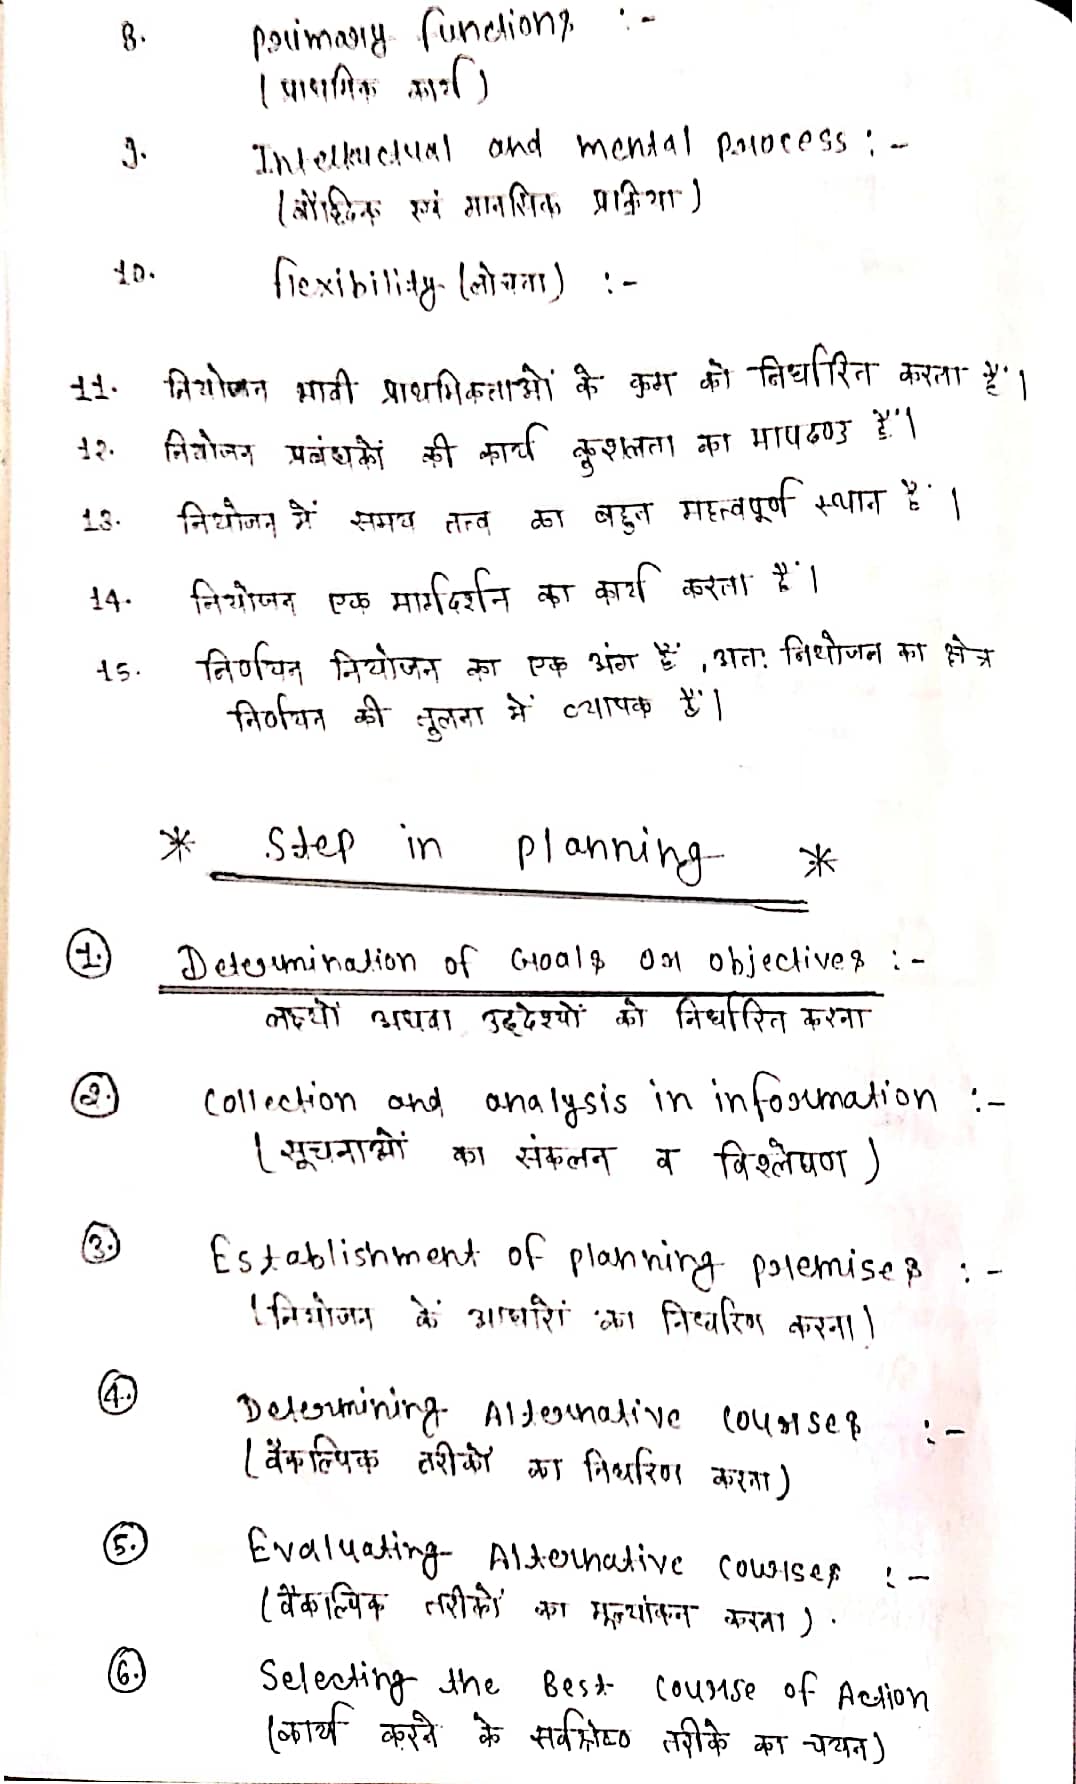 8. Primary functions :-
(प्राथमिक कार्य)
9. Intellectual and mental process :-
(बौद्धिक एवं मानसिक प्रक्रिया)
10. flexibility (लोचता) :-
11. नियोजन भावी प्राथमिकताओं के क्रम को निर्धारित करता हैं।
12. नियोजन प्रबंधकों की कार्य कुशलता का मापदण्ड हैं।
13. नियोजन में समय तत्व का बहुत महत्वपूर्ण स्थान हैं।
14. नियोजन एक मार्गदर्शन का कार्य करता हैं।
15. निर्णयन नियोजन का एक अंग हैं, अतः नियोजन का क्षेत्र
निर्णयन की तुलना में व्यापक हैं।
* Step in planning *
1. Determination of Goals or objectives :-
लक्ष्यों अथवा उद्देश्यों को निर्धारित करना
2. Collection and analysis in information :-
(सूचनाओं का संकलन व विश्लेषण)
3. Establishment of planning premises :-
(नियोजन के आधारों का निर्धारण करना)
4. Determining Alternative courses :-
(वैकल्पिक तरीकों का निर्धारण करना)
5. Evaluating Alternative courses :-
(वैकल्पिक तरीकों का मूल्यांकन करना).
6. Selecting the Best course of Action
(कार्य करने के सर्वश्रेष्ठ तरीके का चयन)